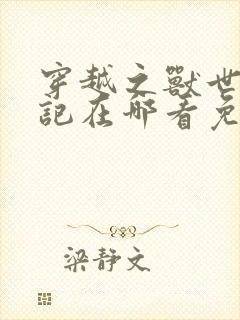 穿越之獸世
記在哪看免
梁静文